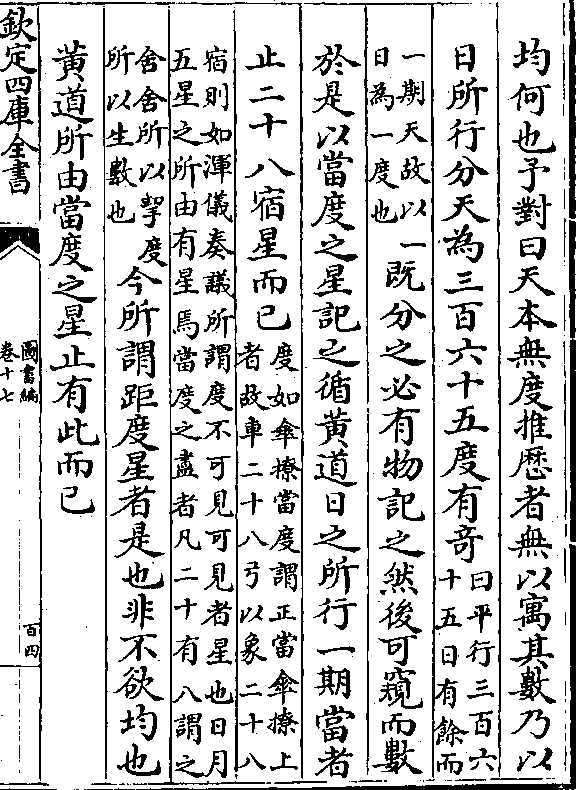 均何也予對曰天本無度推歴者無以寓其數乃以
日所行分天為三百六十五度有奇
曰平行三百六
十五日有餘而
一期天故以一
日為一度也
既分之必有物記之然後可窺而數
於是以當度之星記之循黄道日之所行一期當者
止二十八宿星而已
度如傘橑當度謂正當傘橑上
者故車二十八弓以象二十八
宿則如渾儀奏議所謂度不可見可見者星也日月
五星之所由有星焉當度之盡者凡二十有八謂之
舍舍所以挈度
所以生數也
今所謂距度星者是也非不欲均也
黄道所由當度之星止有此而已
欽定四庫全書
圖書編
卷十七
百四